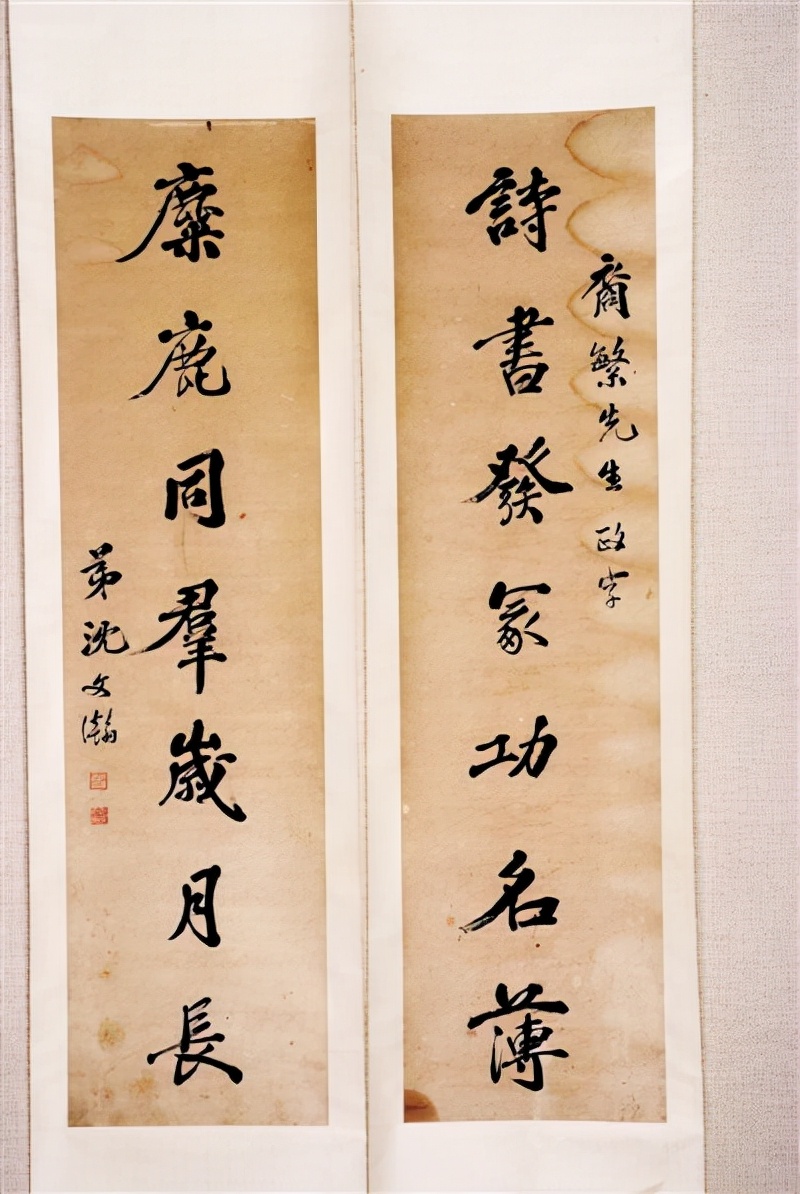 繁先生政字
詩書發冢功名薄
糜鹿同羣歲月長
弟沈文瀚